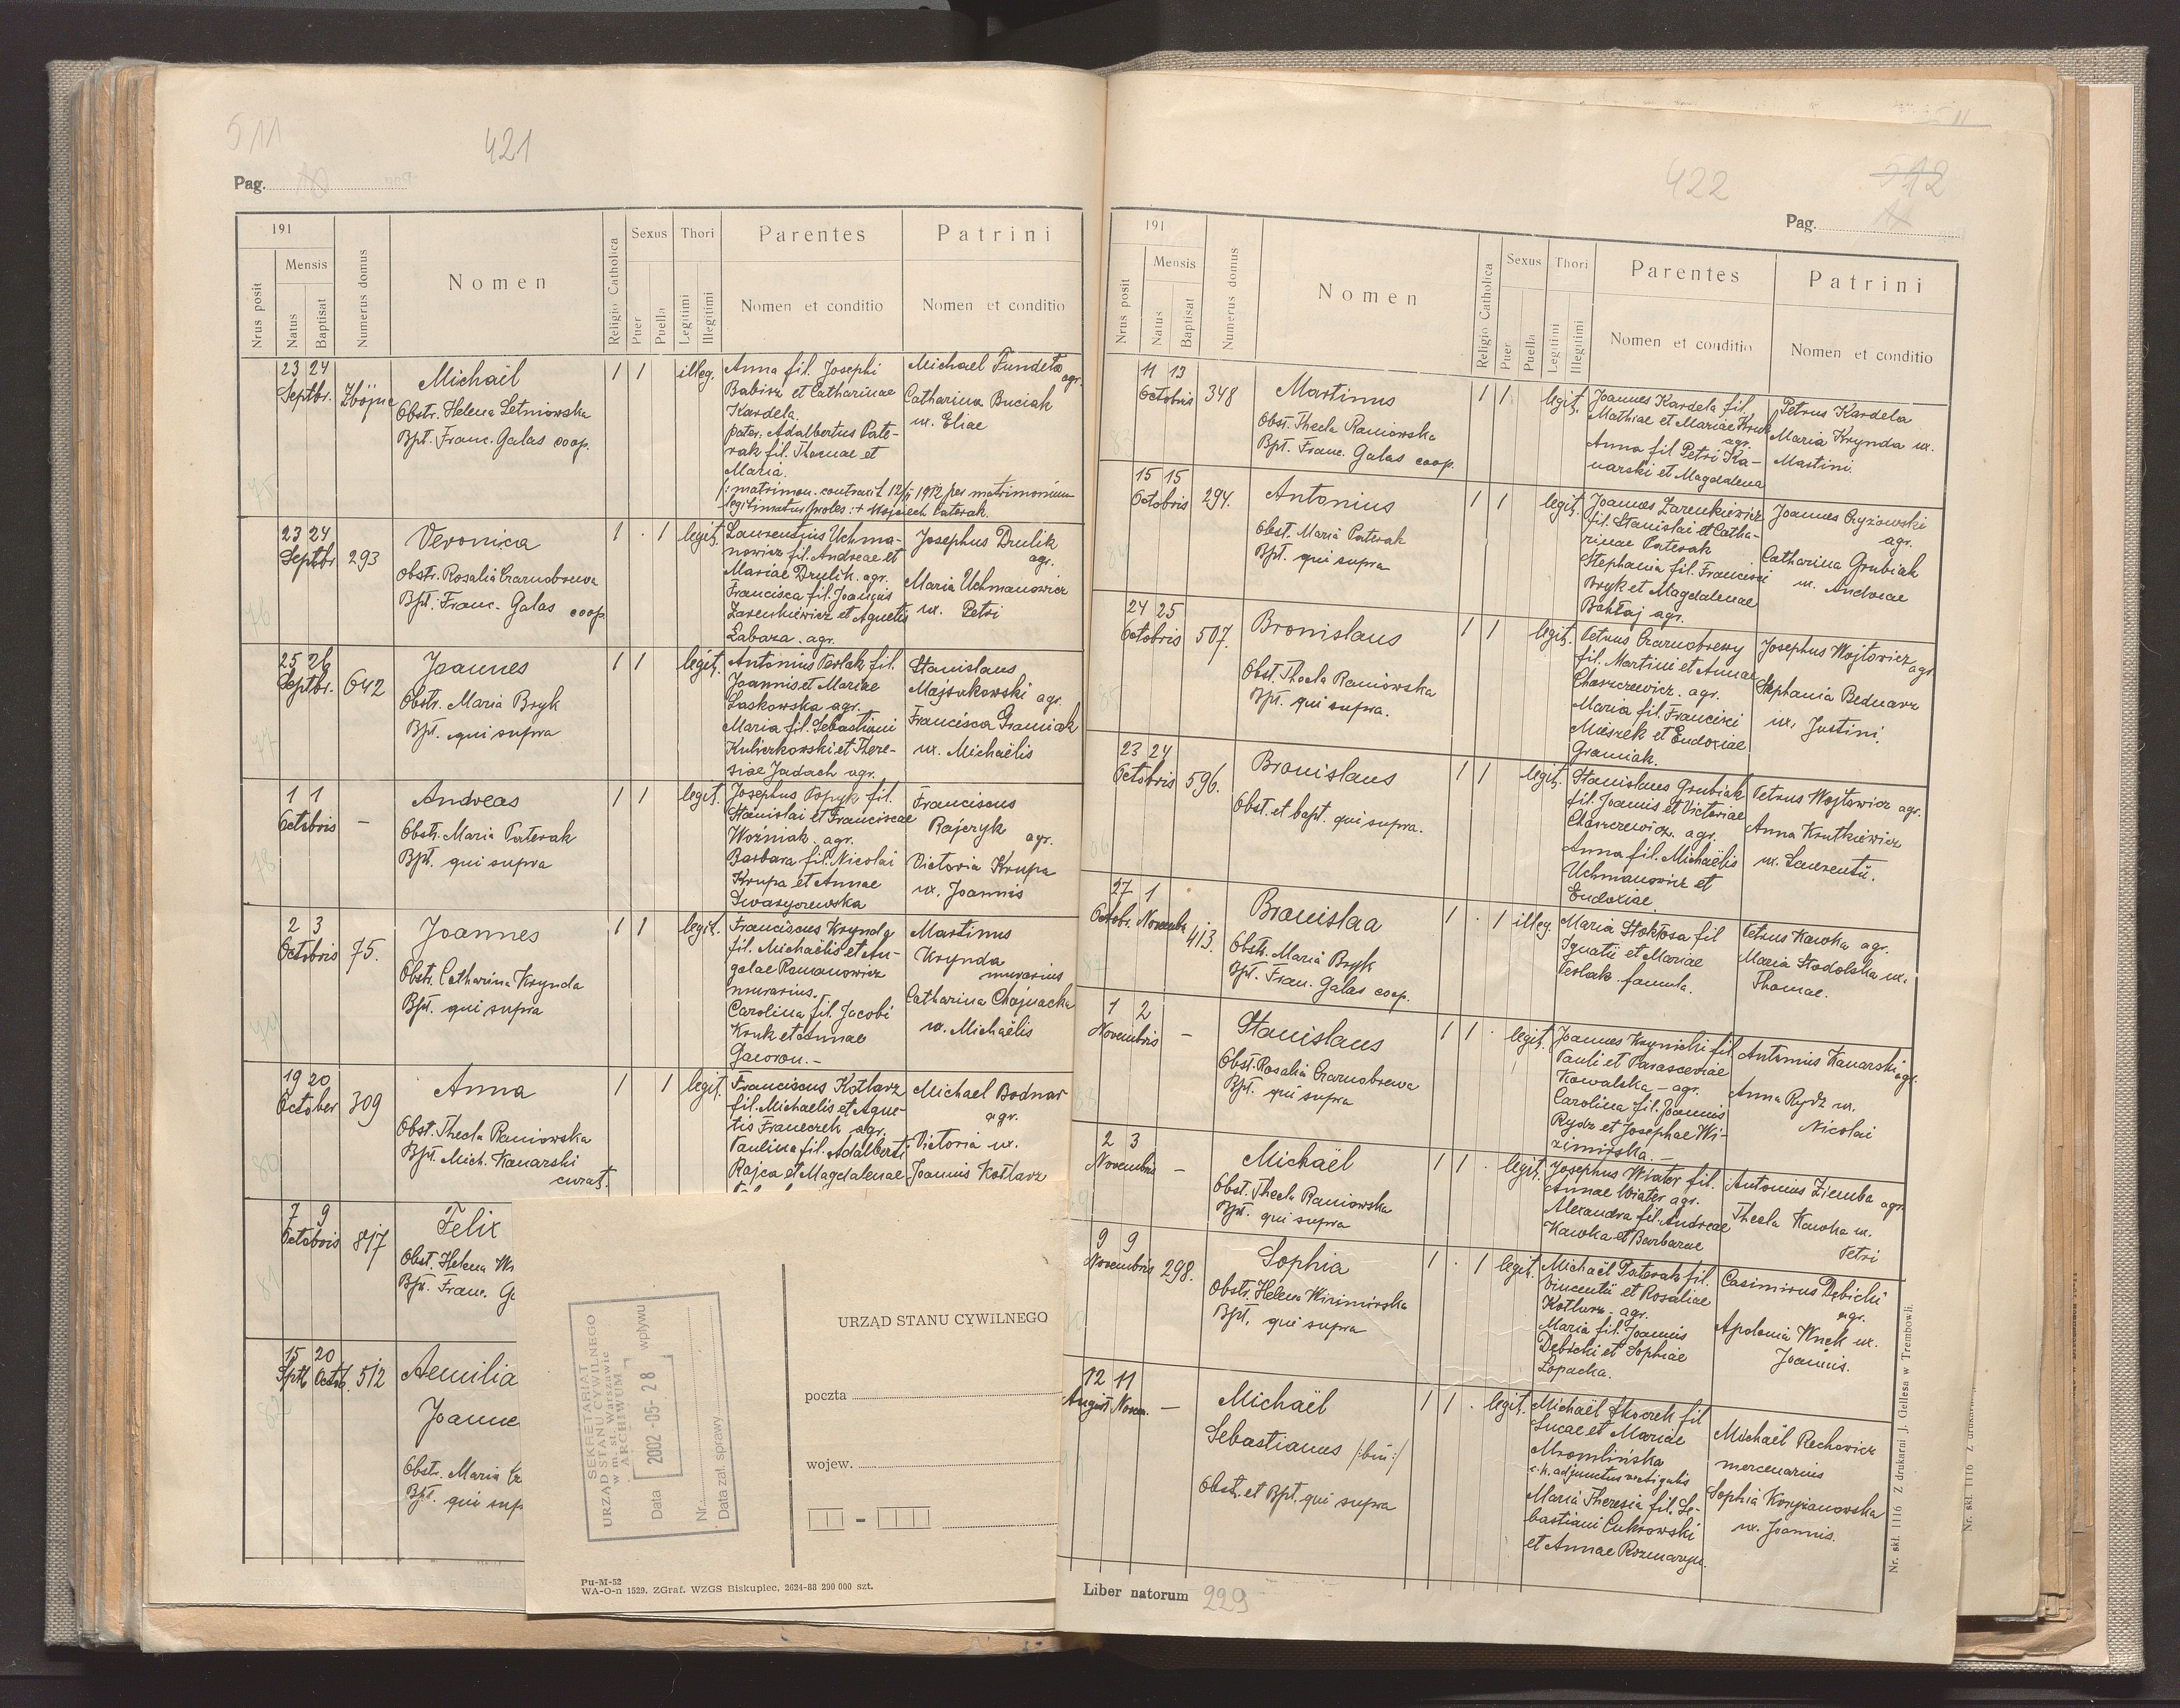 511
421
Pag.
191
Nrus posit
Mensis
Natus
Baptisat
Numerus domus
Nomen
Religio Catholica
Sexus
Puer
Puella
Thori
Legitimi
Illegitimi
Parentes
Nomen et conditio
Patrini
Nomen et conditio
23 24
Septbr.
Zbójna
Michaël
Obstr. Helena Letniowska
Bpt. Franc. Galas coop.
1 1 illeg.
Anna fil. Josephi
Babisz et Catharinae
Kardela.
pater. Adalbertus Pate-
rak fil. Thomae et
Maria.
/: matrimon. contraxit 12/II 1912 per matrimonium
legitimatur proles :+ Wojciech Paterak.
Michael Fundeta
agr.
Catharina Buciak
ux. Eliae
76
23 24
Septbr.
293
Veronica
Obstr. Rosalia Czarnobrewa
Bpt. Franc. Galas coop.
1 . 1 legit.
Laurentius Uchma-
nowicz fil. Andreae et
Mariae Drulik. agr.
Francisca fil. Joannis
Zarenkiewicz et Agnetis
Łabaza. agr.
Josephus Drulik
agr.
Maria Uchmanowicz
ux. Petri
77
25 26
Septbr.
642
Joannes
Obstr. Maria Bryk
Bpt. qui supra
1 1 legit.
Antonius Teslak fil.
Joannis et Mariae
Laskowska agr.
Maria fil. Sebastiani
et There-
siae Jadach agr.
Stanislaus
agr.
Francisca Graniak
ux. Michaëlis
78
1 1
Octobris
–
Andreas
Obstr. Maria Paterak
Bpt. qui supra
1 1 legit.
Josephus Popyk fil.
Stanislai et Franciscae
Woźniak. agr.
Barbara fil. Nicolai
Krupa et Annae
Franciscus
Rajczyk agr.
Victoria Krupa
ux. Joannis
79
2 3
Octobris
75.
Joannes
Obstr. Catharina Krynda
Bpt. qui supra
1 1 legit.
Franciscus Krynda
fil. Michaëlis et An-
galae Romanowicz
murarius.
Carolina fil. Jacobi
Kruk et Annae
Gawron. –
Martinus
Krynda
murarius
Catharina Chojnacka
ux. Michaëlis
80
19 20
October
309
Anna
Obst. Thecla Raniowska
Bpt. Mich. Kanarski
curat.
1 1 legit.
Franciscus Kotlarz
fil. Michaelis et Agne-
tis Franeczek agr.
Paulina fil. Adalberti
Rajca et Magdalenae
Michael Bodnar
agr.
Victoria ux.
Joannis Kotlarz
81
7 9
Octobris
817
Felix
Obst. Helena Wi
Bpt. Franc. Ga
82
15 20
Sptb. Octob.
512
Aemilia
Joanne
Obstr. Maria Cz
Bpt. qui sup
SEKRETARIAT
URZĄD STANU CYWILNEGO
w m. st. Warszawie
ARCHIWUM
Data 2002-05-28 wpływu
Nr.
Data zał. sprawy
URZĄD STANU CYWILNEGO
poczta
wojew.
Pu-M-52
WA-O-n 1529. ZGraf. WZGS Biskupiec, 2624-88 200 000 szt.
422
512
Pag.
191
Nrus posit
Mensis
Natus
Baptisat
Numerus domus
Nomen
Religio Catholica
Sexus
Puer
Puella
Thori
Legitimi
Illegitimi
Parentes
Nomen et conditio
Patrini
Nomen et conditio
11 13
Octobris
348
Martinus
Obst. Thecla Raniowska
Bpt. Franc. Galas coop.
1 1 legit.
Joannes Kardela fil.
Mathiae et Mariae Kruk
agr.
Anna fil Petri Ka-
narski et Magdalena
Petrus Kardela
Maria Krynda ux.
Martini.
15 15
Octobris
294.
Antonius
Obst. Maria Paterak
Bpt. qui supra
1 1 legit.
Joannes Zarenkiewicz
fil. Stanislai et Catha-
rinae Paterak
Stephania fil. Francisci
Bryk et Magdalenae
Bahłaj agr.
Joannes Czyżowski
agr.
Catharina Grubiak
ux. Andreae
24 25
Octobris
507.
Bronislaus
Obst. Thecla Raniowska
Bpt. qui supra.
1 1 legit.
Petrus Czarnobrewy
fil. Martini et Annae
Chaszczewicz. agr.
Maria fil. Francisci
Mieszek et Eudoxiae
Graniak.
Josephus Wojtowicz agr.
Stephania Bednarz
ux. Justini.
23 24
Octobris
596.
Bronislaus
Obst. et bapt. qui supra.
1 1 legit.
Stanislaus Grubiak
fil. Joannis et Victoriae
Chaszczewicz. agr.
Anna fil. Michaëlis
Uchmanowicz et
Eudoxiae.
Petrus Wojtowicz agr.
Anna Krutkiewicz
ux. Laurentii.
27 1
Octobr. Novembr.
413.
Bronislaa
Obstr. Maria Bryk
Bpt. Fran. Galas coop.
1 . 1 illeg.
Maria Stokłosa fil
Ignatii et Mariae
Teslak famula.
Petrus Kawka agr.
Maria Stodolska ux.
Thomae.
1 2
Novembris
–
Stanislaus
Obst. Rosalia Czarnobrewa
Bpt. qui supra
1 1 . legit.
Joannes Krynicki fil.
Pauli et Parasceviae
Kowalska – agr.
Carolina fil. Joannis
Rydz et Josephae Wi-
zimirska. –
Antonius Kanarski agr.
Anna Rydz ux.
Nicolai
2 3
Novembris
–
Michaël
Obst. Thecla Raniowska
Bpt. qui supra
1 1 . legit.
Josephus Wiater fil.
Annae Wiater agr.
Alexandra fil. Andreae
Kawka et Barbarae
Antonius Ziemba agr
Thecla Kawka ux.
Petri
9 9
Novembris
298.
Sophia
Obstr. Helena Wizimirska
Bpt. qui supra
1 . 1 legit.
Michaël Paterak fil.
Vincentii et Rosaliae
Kotlarz – agr.
Maria fil. Joannis
Dębicki et Sophiae
Łopacka.
Casimirus Dębicki
agr.
Apolonia Wnek ux.
Joannis.
12 11
August Novem.
–
Michaël
Sebastianus /:bin:/
Obstr. et Bpt. qui supra
1 1 . legit.
Michaël Skoczek fil
Lucae et Mariae
Mromlińska
c.k. adjunctus vectigalis
Maria Theresia fil. Se-
bastiani Cukrowski
et Annae Rozmaryn.
Michaël Rechowicz
mercenarius
Sophia Krzyżanowska
ux. Joannis.
Liber natorum 229
Nr. skł. 1116 Z drukarni J. Gellesa w Trembowli.
Nr. skł. 1116 Z drukar